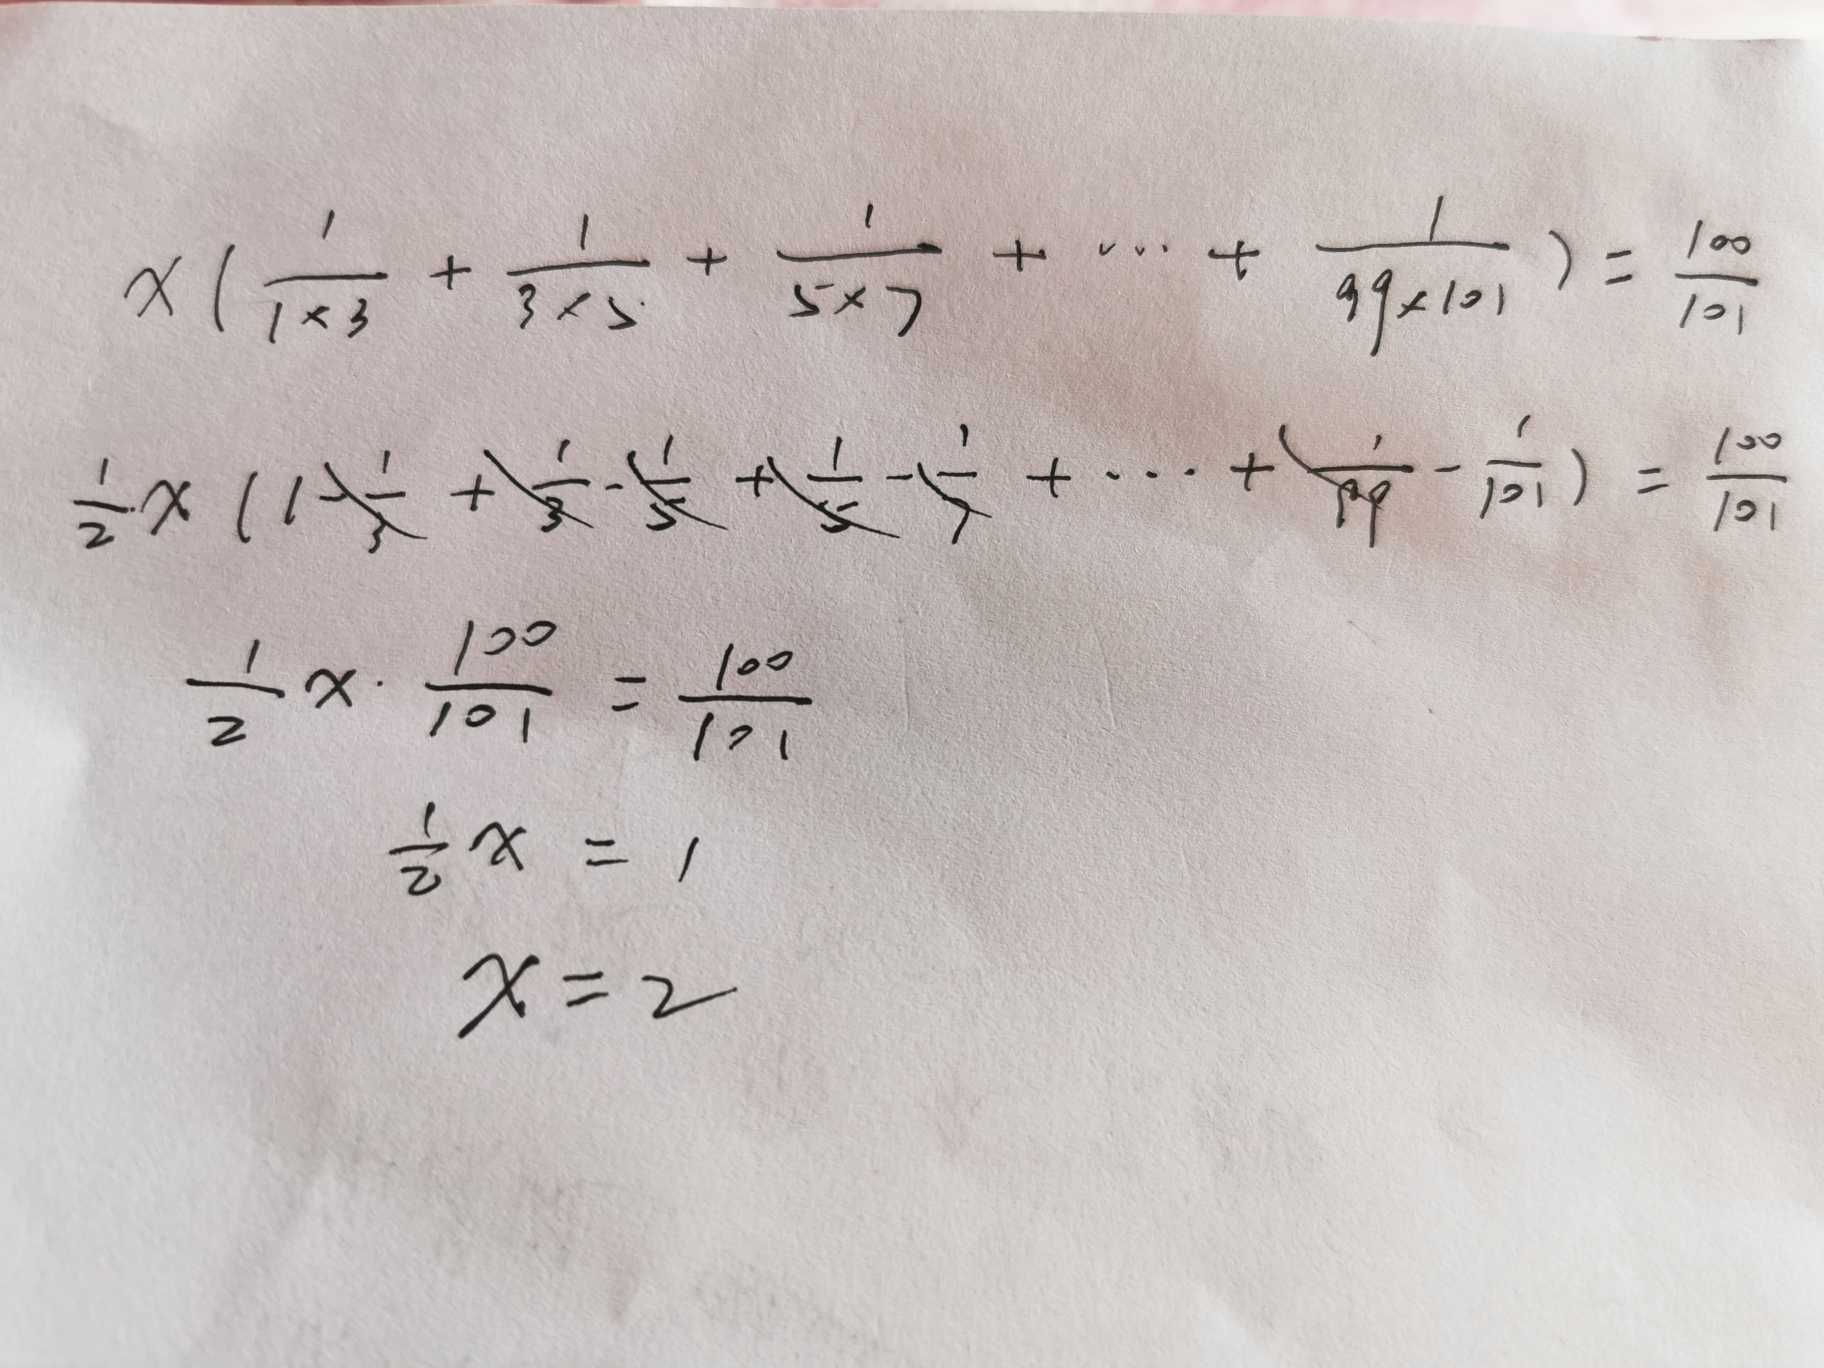 x(1/(1×3) + 1/(3×5) + 1/(5×7) + ... + 1/(99×101)) = 100/101
1/2·x(1 - 1/3 + 1/3 - 1/5 + 1/5 - 1/7 + ... + 1/99 - 1/101) = 100/101
1/2 x · 100/101 = 100/101
1/2 x = 1
x = 2